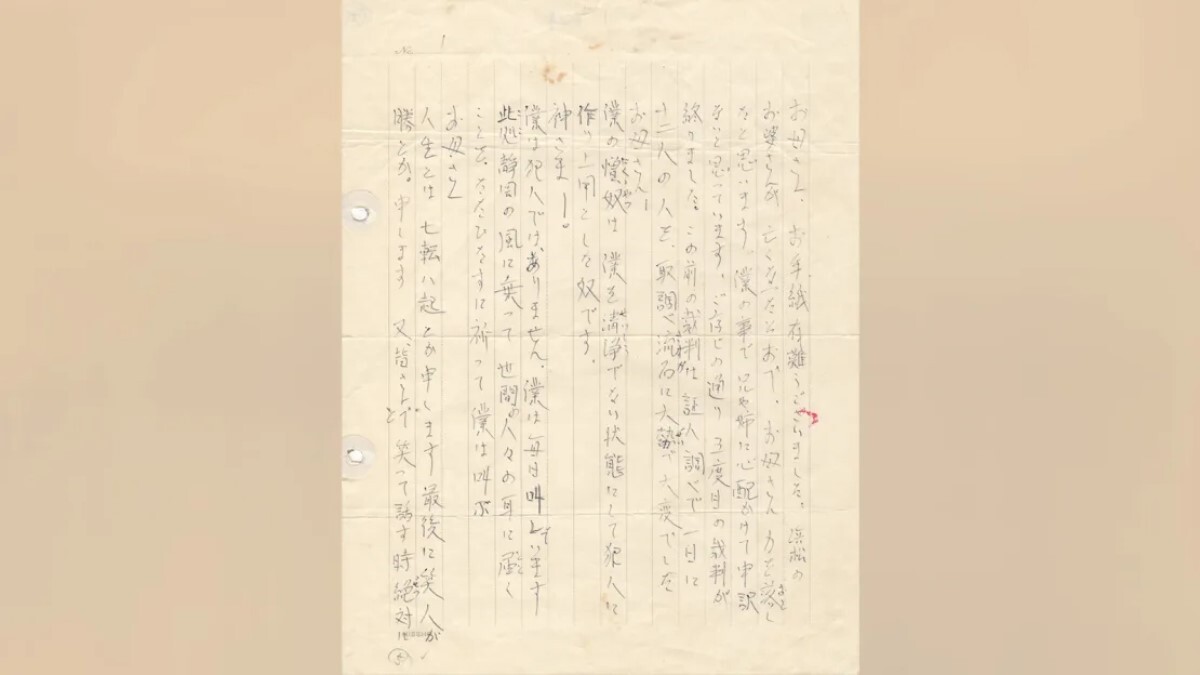 お母さん、お手紙有難うございました。浜松の
お婆さんが亡くなったそおで、お母さん力を落し
たと思います、僕の事で兄や姉に心配かけて申訳
ないと思っています、ご存じの通り 三度目の裁判が
終りました、この前の裁判は証人調べで一日に
十二人の人を、取調べ流石に大勢で大変でした
お母さんー
僕の憎奴は 僕を清浄でない状態にして犯人に
作り上げ
こした奴です。
神さまー。
僕は犯人ではありません、僕は毎日叫んでいます
此処静岡の風に乗って 世間の人々の耳に届く
ことを、ただひたすに祈って 僕は叫ぶ
お母さん
人生とは 七転八起とか申します 最後に笑人が
勝とか。申します 又、皆さんで 笑って話す時絶対に
5